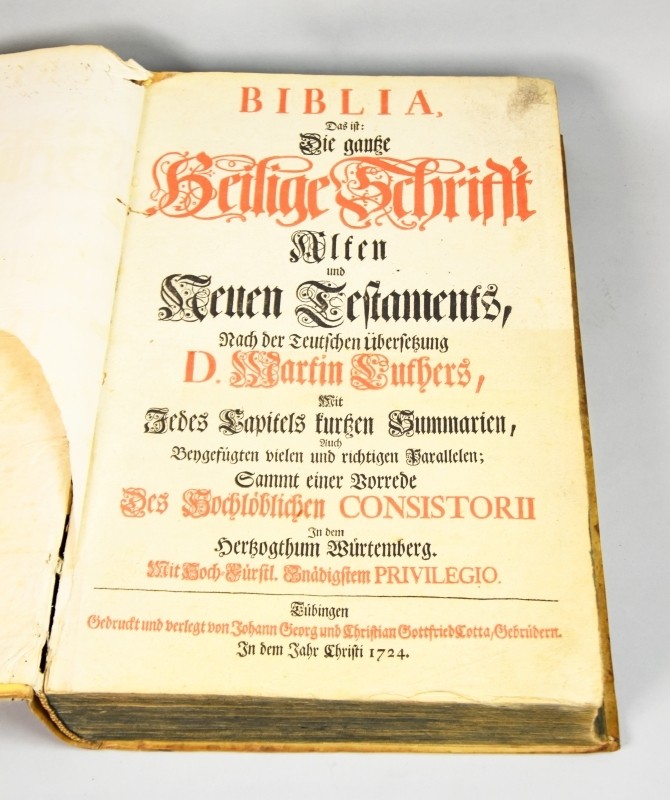 BIBLIA,
Das ist:
Die gantze
Heilige Schrifft
Alten
und
Neuen Testaments,
Nach der Teutschen Übersetzung
D. Martin Luthers,
Mit
Jedes Capitels kurtzen Summarien,
Auch
Beygefügten vielen und richtigen Parallelen;
Sammt einer Vorrede
Des Hochlöblichen CONSISTORII
In dem
Hertzogthum Würtemberg.
Mit Hoch-Fürstl. Gnädigstem PRIVILEGIO.
Tübingen
Gedruckt und verlegt von Johann Georg und Christian Gottfried Cotta, Gebrüdern.
In dem Jahr Christi 1724.